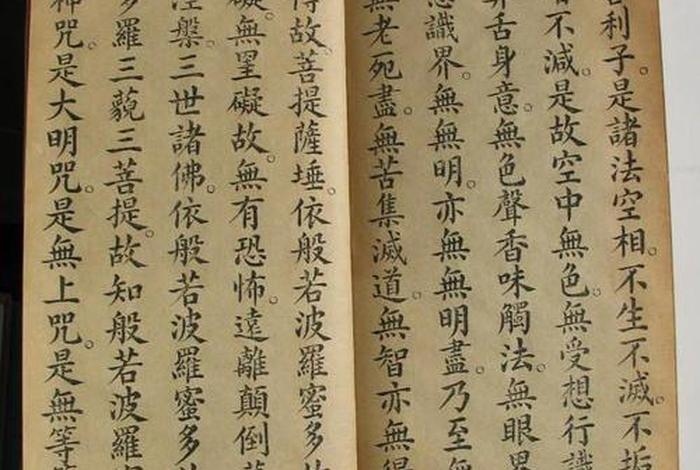 利子。是諸法空相。不生不滅。不垢
不減。是故空中無色。無受想行識
舌身意。無色聲香味觸法。無眼界
識界。無無明。亦無無明盡。乃至無
無老死盡。無苦集滅道。無智亦無得
得故。菩提薩埵。依般若波羅蜜多故
礙。無罣礙故。無有恐怖。遠離顛倒
涅槃三世諸佛。依般若波羅蜜多
多羅三藐三菩提。故知般若波羅
神咒。是大明咒。是無上咒。是無等等